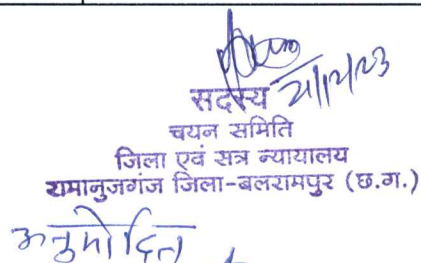 सदस्य
चयन समिति
जिला एवं सत्र न्यायालय
रामानुजगंज जिला-बलरामपुर (छ.ग.)
अनुमोदित